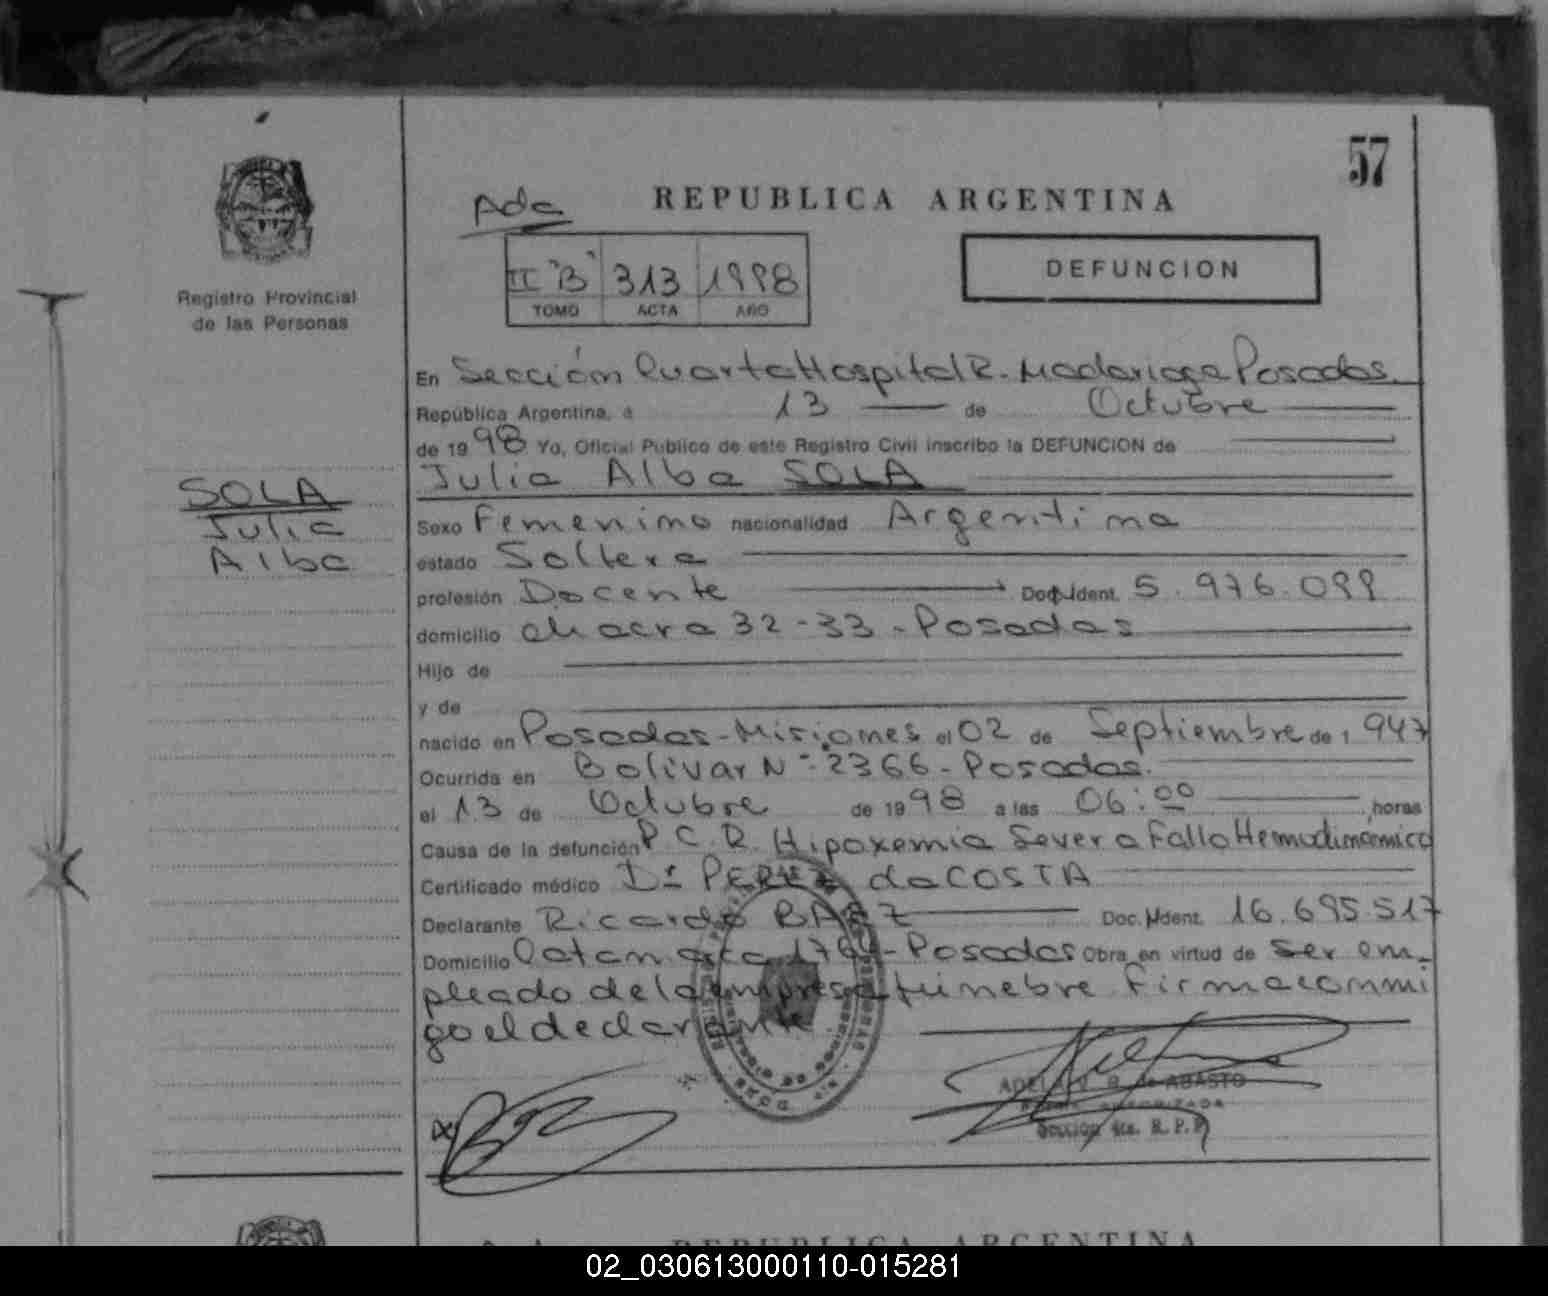 57
Ada
REPUBLICA ARGENTINA
II "B" 313 1998
TOMO ACTA AÑO
DEFUNCION
Registro Provincial
de las Personas
En Sección Cuarta Hospital R. Madariaga Posadas.
República Argentina, a 13 de Octubre
de 1998 Yo, Oficial Público de este Registro Civil inscribo la DEFUNCION de
Julia Alba SOLA
SOLA
Julia
Alba
Sexo Femenino nacionalidad Argentina
estado Soltera
profesión Docente Doc. Ident. 5.976.099
domicilio chacra 32-33-Posadas
Hijo de
y de
nacido en Posadas-Misiones el 02 de Septiembre de 1947
Ocurrida en Bolivar Nº 2366-Posadas.
el 13 de Octubre de 1998 a las 06:00 horas
Causa de la defunción P.C.R. Hipoxemia Severa Fallo Hemodinamico
Certificado médico Dr PEREZ da COSTA
Declarante Ricardo BAEZ Doc. Ident. 16.695.517
Domicilio Catamarca Posadas Obra en virtud de ser em-
pleado de la empresa fúnebre. Firma conmi
go el declarante
ABASTO
Sección 4ta. R.P.P.
REPUBLICA ARGENTINA
02_030613000110-015281